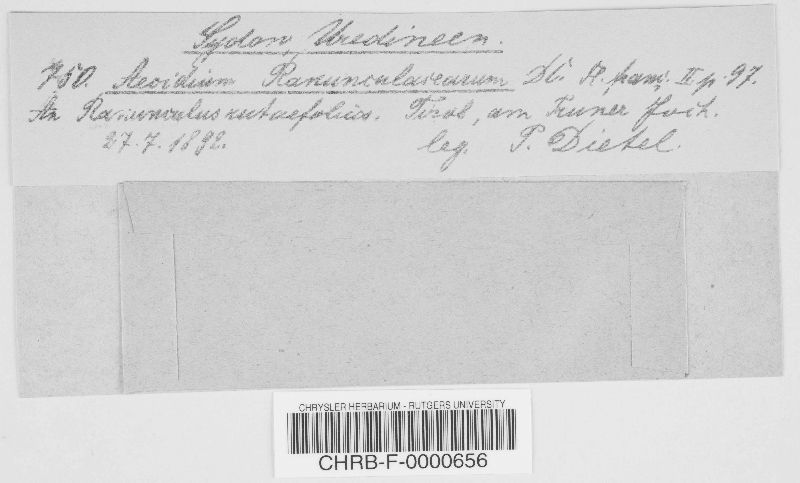 Sydow, Uredineen.
750. Aecidium Ranunculacearum DC. Fl. franç. II p. 97.
An Ranunculus rutaefolius. Tirol, am Krimer Joch.
27. 7. 1892. leg. P. Dietel.
CHRYSLER HERBARIUM - RUTGERS UNIVERSITY
CHRB-F-0000656